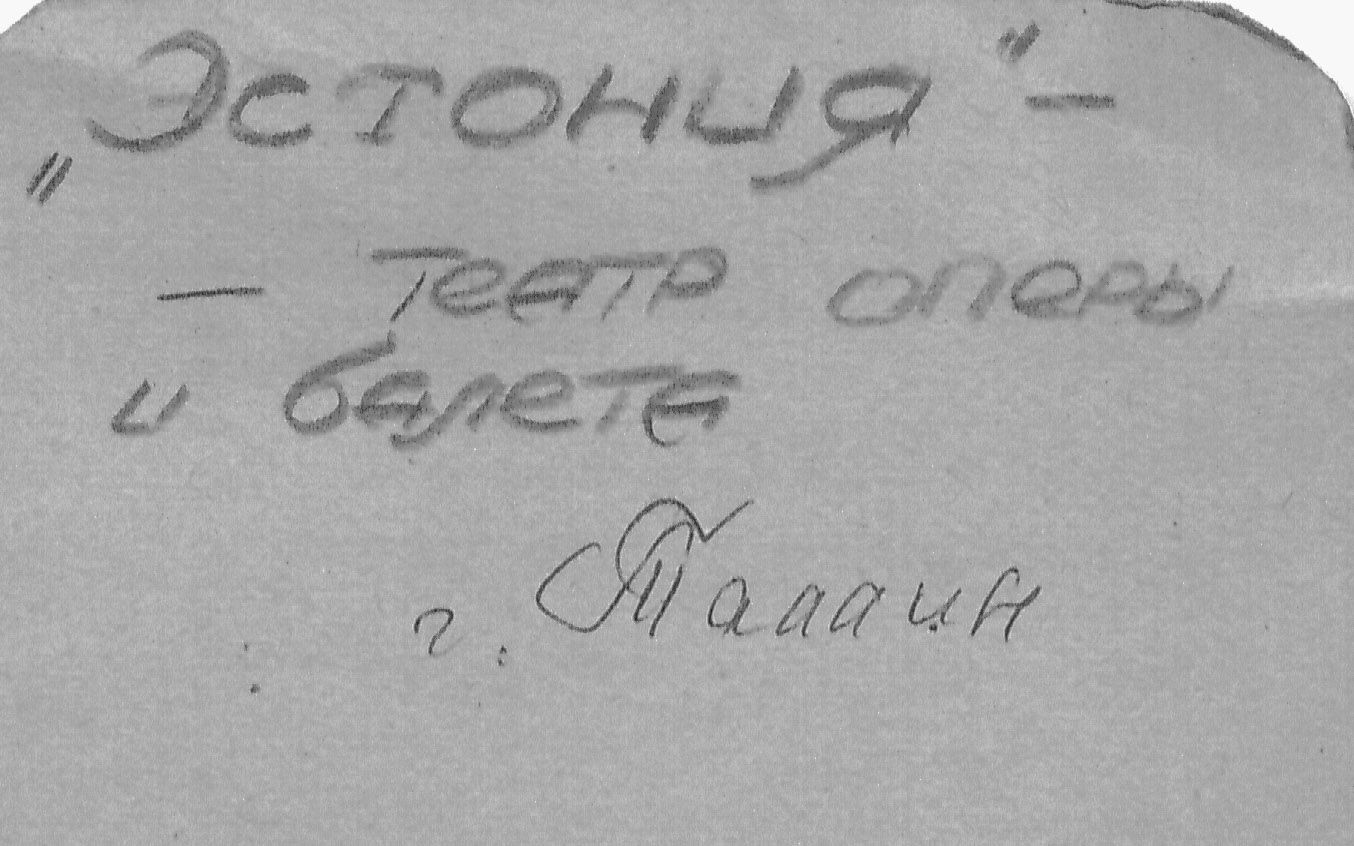 „Эстония" –
– театр оперы
и балета
г. Таллин